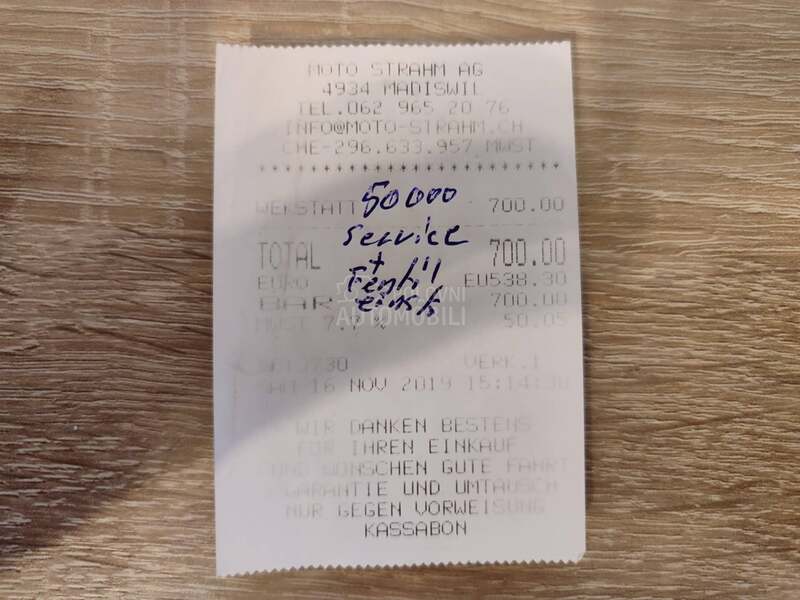 MOTO STRAHM AG
4934 MADISWIL
TEL.062 965 20 76
INFO@MOTO-STRAHM.CH
CHE-296.633.957 MWST
*********************
WERKSTATT 50000 700.00
Service
TOTAL 700.00
+
EURO EU538.30
BAR 700.00
POLOVNI
AUTOMOBILI
MWST 7.7% 50.05
VERK.1
16 NOV 2019 15:14:30
WIR DANKEN BESTENS
FÜR IHREN EINKAUF
UND WÜNSCHEN GUTE FAHRT
GARANTIE UND UMTAUSCH
NUR GEGEN VORWEISUNG
KASSABON